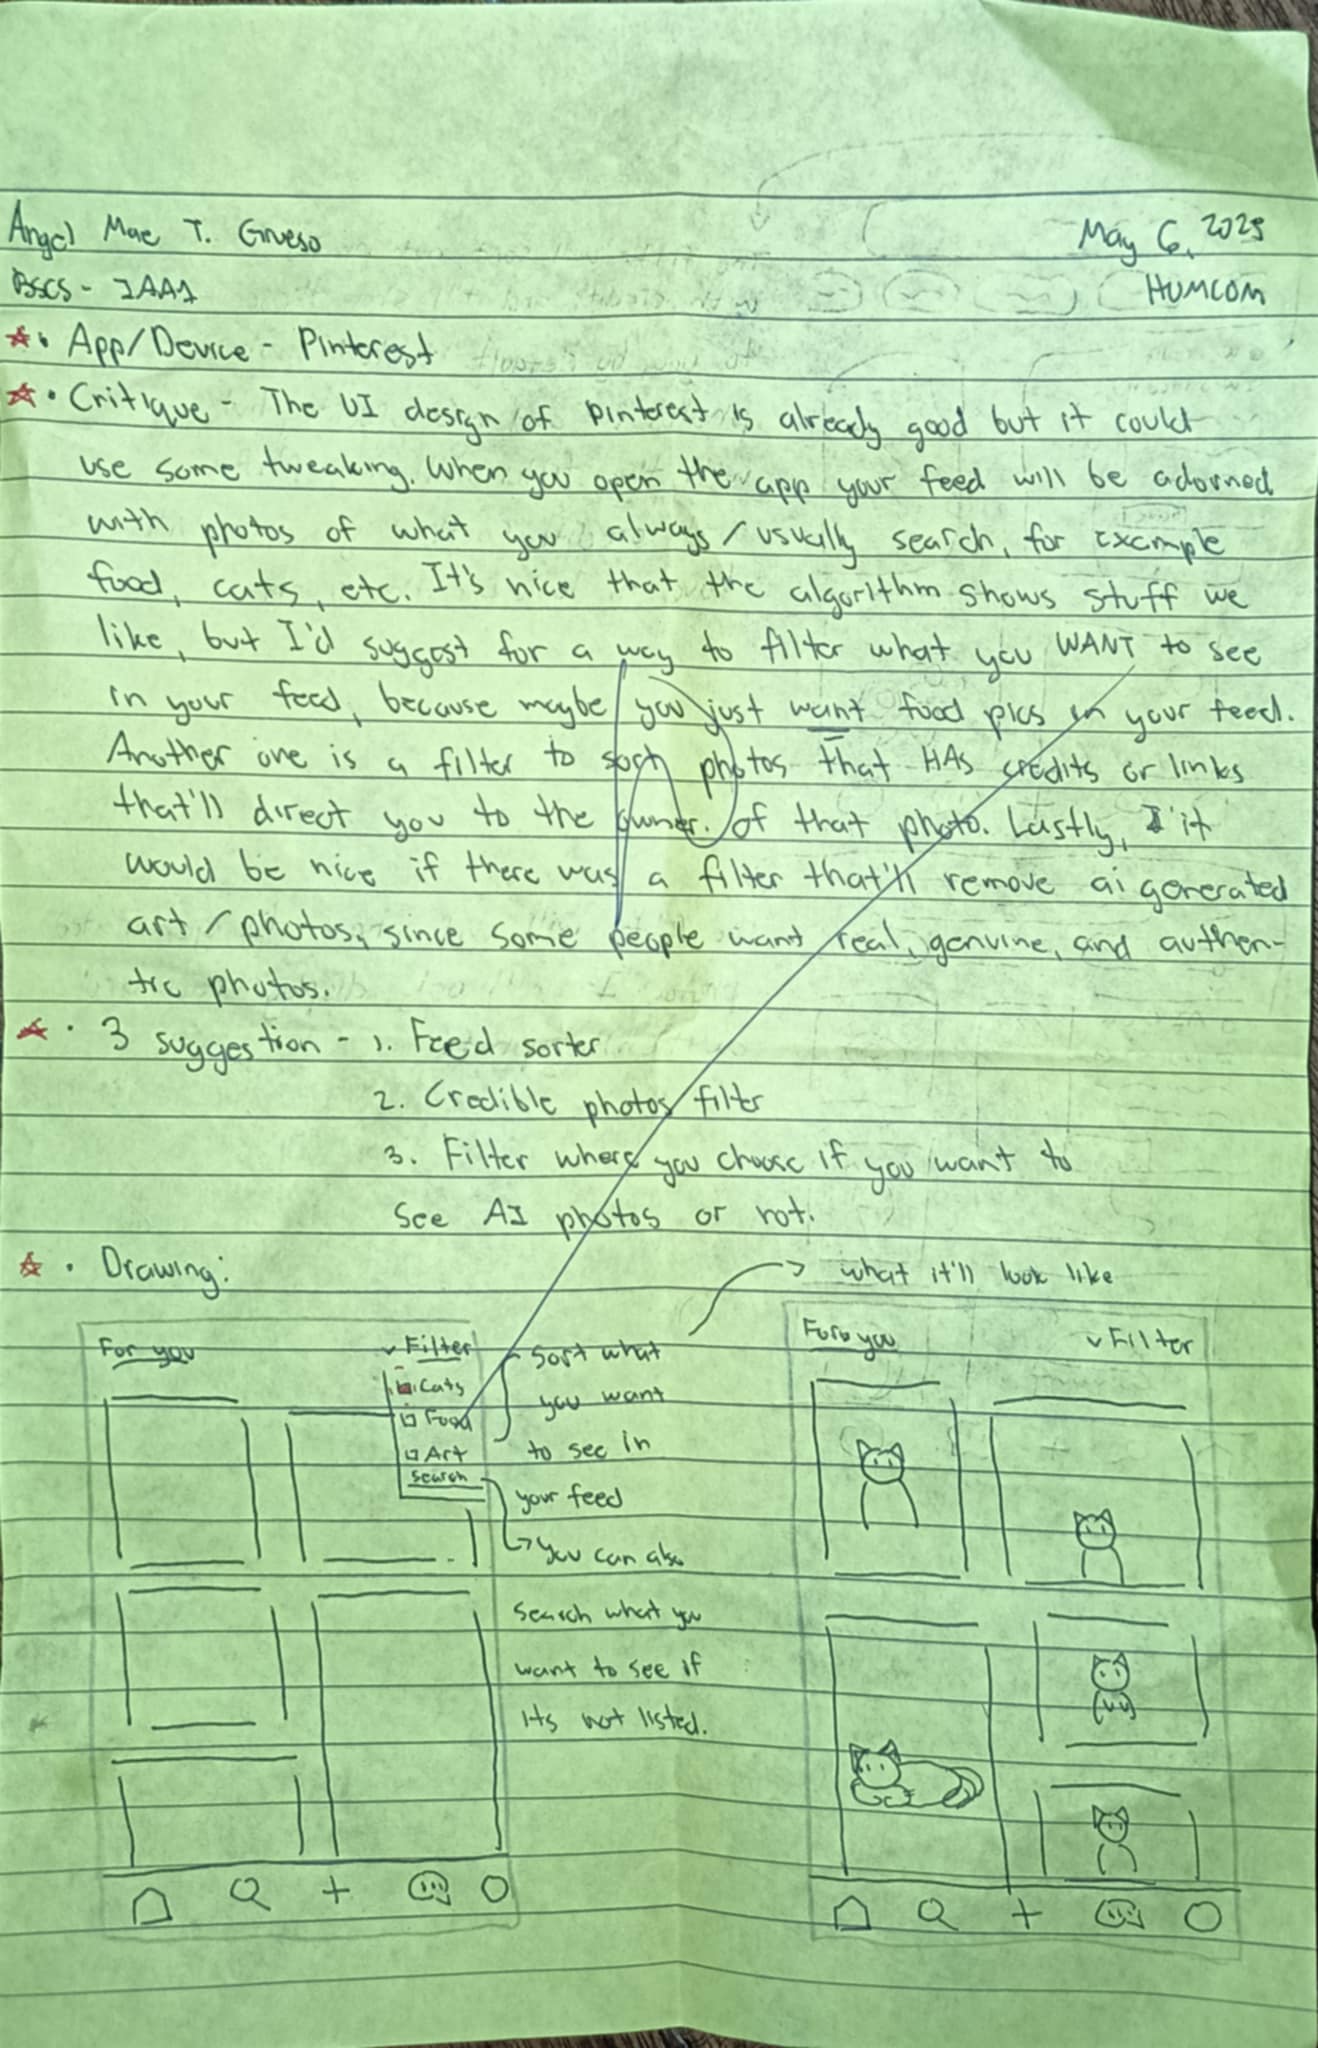 Angel Mae T. Grueso
May 6, 2025
BSCS - 1AA1
HUMCOM
App/Device - Pinterest
Critique - The UI design of pinterest is already good but it could
use some tweaking. When you open the app your feed will be adorned
with photos of what you always/usually search, for example
food, cats, etc. It's nice that the algorithm shows stuff we
like, but I'd suggest for a way to filter what you WANT to see
in your feed, because maybe you just want food pics in your feed.
Another one is a filter to sort photos that HAs credits or links
that'll direct you to the owner. of that photo. Lastly, it
would be nice if there was a filter that'll remove ai generated
art/photos, since some people want real, genuine, and authen-
tic photos.
3 suggestion - 1. Feed sorter
2. Credible photos filter
3. Filter where you choose if you want to
see AI photos or not.
Drawing:
For you
Filter
Cats
Food
Art
Search
sort what
you want
to see in
your feed
you can also
search what you
want to see if
its not listed.
what it'll look like
For you
Filter